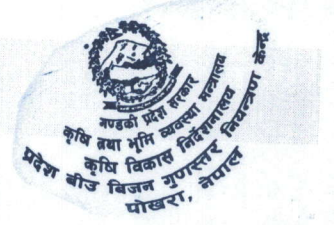 गण्डकी प्रदेश सरकार
कृषि तथा भूमि व्यवस्था मन्त्रालय
कृषि विकास निर्देशनालय
प्रदेश बीउ बिजन गुणस्तर नियन्त्रण केन्द्र
पोखरा, नेपाल